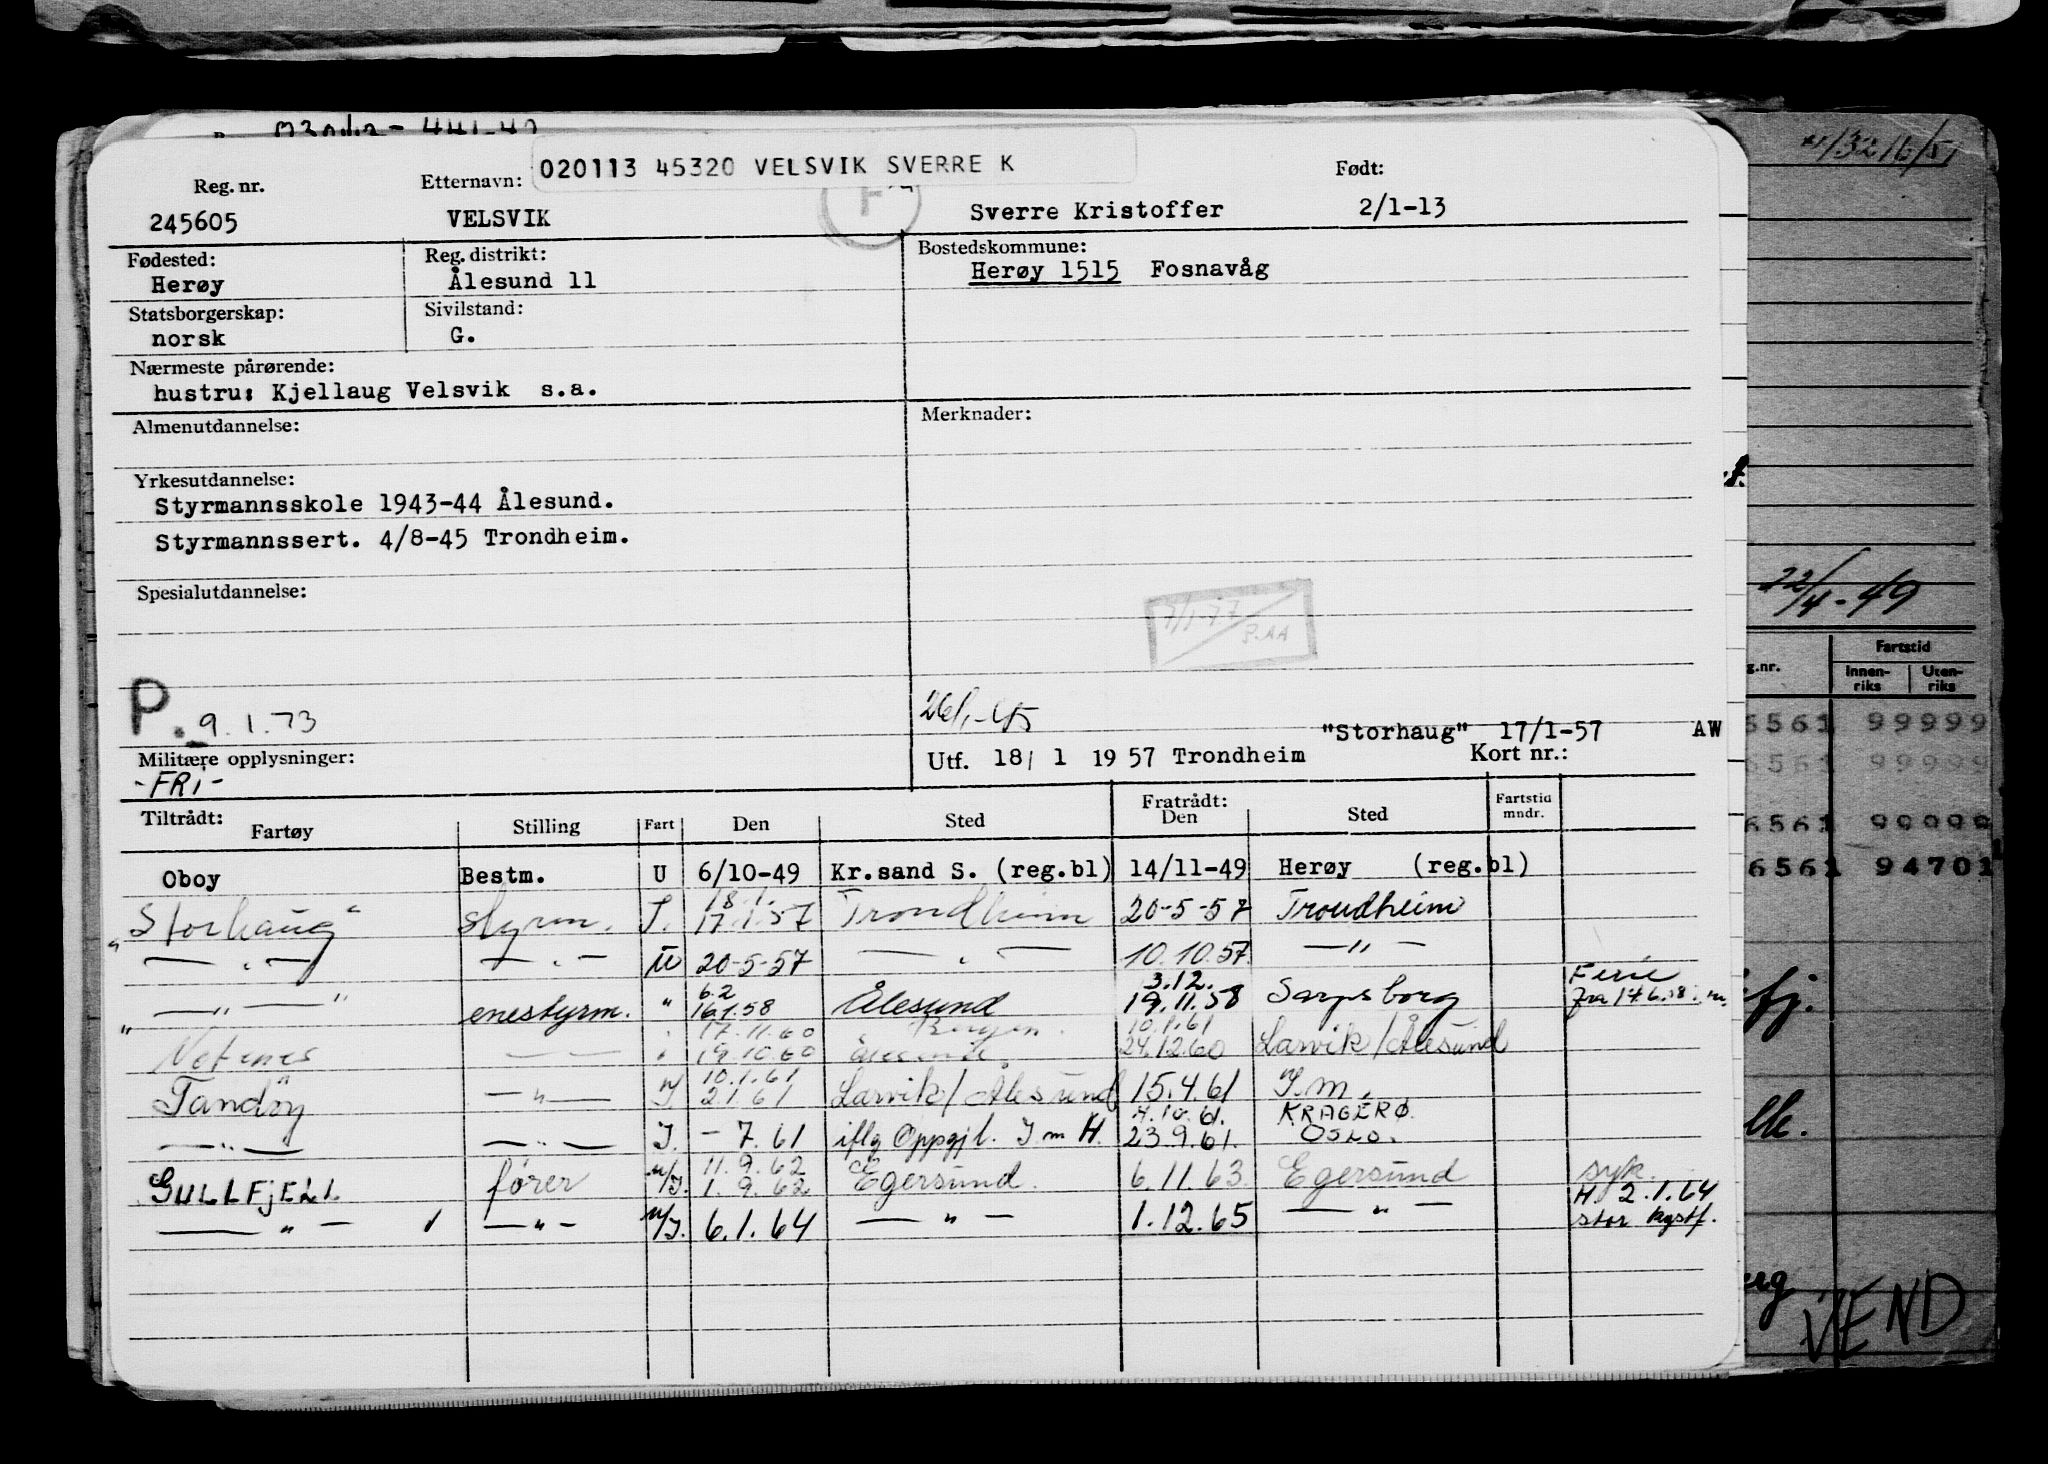 020113 45320 VELSVIK SVERRE K
Reg. nr. Etternavn: Født:
245605 VELSVIK Sverre Kristoffer 2/1-13
F
Fødested: Reg. distrikt: Bostedskommune:
Herøy Ålesund 11 Herøy 1515 Fosnavåg
Statsborgerskap: Sivilstand:
norsk G.
Nærmeste pårørende:
hustru: Kjellaug Velsvik s.a.
Almenutdannelse: Merknader:
Yrkesutdannelse:
Styrmannsskole 1943-44 Ålesund.
Styrmannssert. 4/8-45 Trondheim.
Spesialutdannelse:
P. 9.1.73
"Storhaug" 17/1-57 AW
Militære opplysninger: Utf. 18/1 1957 Trondheim Kort nr.:
-FRI-
Tiltrådt: Fratrådt:
Fartøy Stilling Fart Den Sted Den Sted Fartstid mndr.
Oboy Bestm. U 6/10-49 Kr.sand S. (reg.bl) 14/11-49 Herøy (reg.bl)
18.1.
"Storhaug" styrm. I. 17.1.57 Trondheim 20-5-57 Trondheim
— " — — " — U 20-5-57 — " — 10.10.57. — " —
6.2 3.12. Ferie
" — " — " enestyrm. " 16.1.58 Ålesund 19.11.58 Sarpsborg
17.11.60 Bergen. 10.1.61
— — " 19.10.60 24.12.60 Larvik/Ålesund
10.1.61
Tandøy — " — 2.1.61 Larvik/Ålesund 15.4.61 I.m.
4.10.61. KRAGERØ
— " — — " — I. - 7.61 iflg Oppgj l. I m H. 23.9.61. OSLO.
11.9.62 syk
GULLFJELL fører U/I. 1.9.62 Egersund. 6.11.63. Egersund H 2.1.64
— " — — " — U/I. 6.1.64 — " — 1.12.65 — " — stor kystf.
22/4-49
g.nr. Fartstid
Innen-riks Uten-riks
6561 99999
6561 99999
6561 99999
6561 94701
VEND